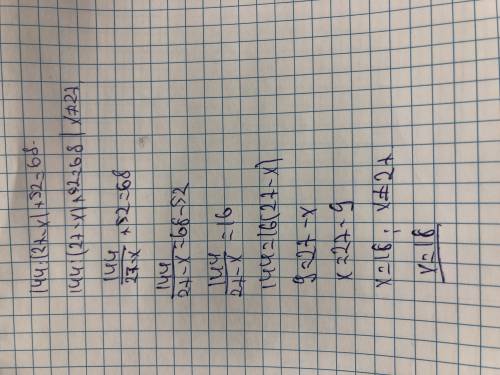 144:(27-x)+52=68.
144:(27-x)+52=68 | x≠27
144/27-x +52=68
144/27-x =68-52
144/27-x =16
144=16(27-x)
9=27-x
x=27-9
x=18; x≠27
x=18